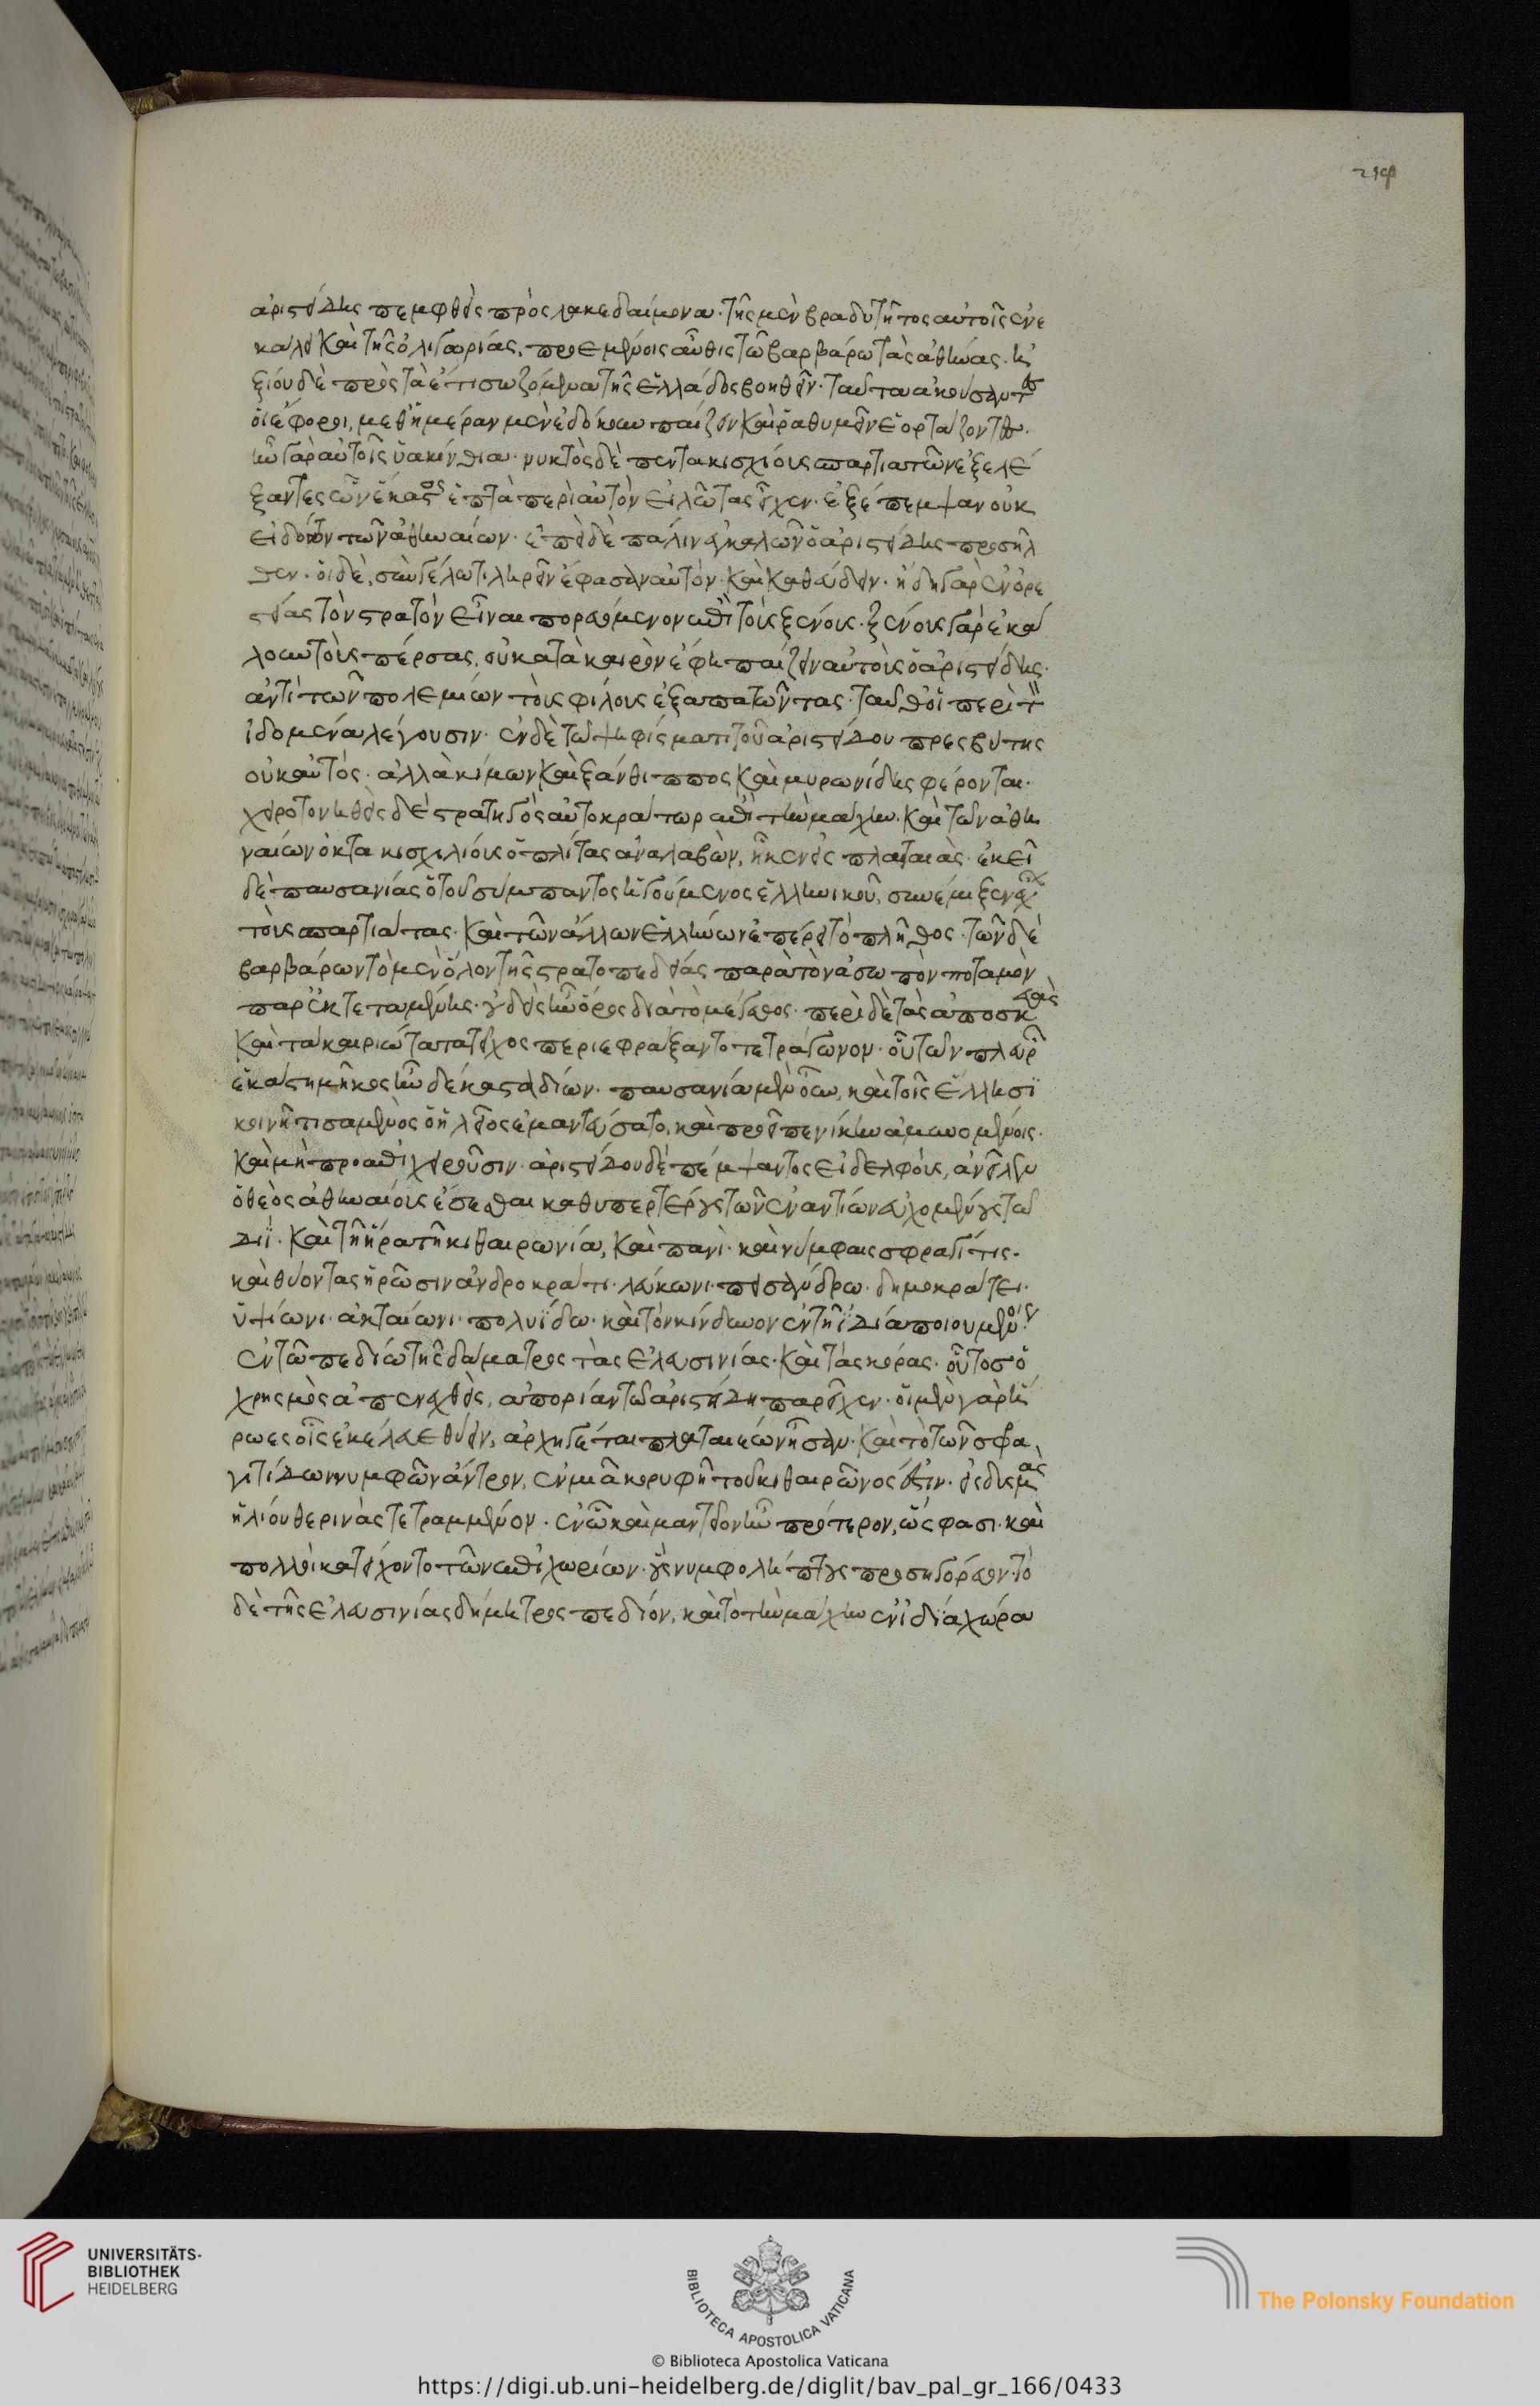 219
ἀριστείδης πεμφθεὶς πρὸς λακεδαίμονα· τῆς μὲν βραδυτῆτος αὐτοῖς ἐνε
κάλει καὶ τῆς ὀλιγωρίας, προεμένοις αὖθις τῶ βαρβάρω τὰς ἀθήνας· ἠ
ξίου δὲ πρὸς τὰ ἔτι σωζόμενα τῆς ἑλλάδος βοηθεῖν· ταῦτα ἀκούσαντες
οἱ ἔφοροι, μεθ' ἡμέραν μὲν ἐδόκουν παίζειν καὶ ῥαθυμεῖν ἑορτάζοντες·
ἦν γὰρ αὐτοῖς ὑακίνθια· νυκτὸς δὲ πεντακισχιλίους σπαρτιατῶν ἐξελέ
ξαντες ὧν ἕκαστος ἑπτὰ περὶ αὐτὸν εἵλωτας εἶχεν· ἐξέπεμψαν οὐκ
εἰδότων τῶν ἀθηναίων· ἐπεὶ δὲ πάλιν ἐγκαλῶν ὁ ἀριστείδης προσῆλ
θεν· οἱ δὲ, σὺν γέλωτι ληρεῖν ἔφασαν αὐτὸν καὶ καθεύδειν· ἤδη γὰρ ἐν ὀρε
στείας τὸν στρατὸν εἶναι πορευόμενον ἐπὶ τοὺς ξένους· ξένους γὰρ ἐκά
λουν τοὺς πέρσας, οὐ κατὰ καιρὸν ἔφη παίζειν αὐτοὺς ὁ ἀριστείδης·
ἀντὶ τῶν πολεμίων τοὺς φίλους ἐξαπατῶντας· ταῦθ' οἱ περὶ τὸν
ἰδομενέα λέγουσιν· ἐν δὲ τῶ ψηφίσματι τοῦ ἀριστείδου πρεσβύτης
οὐκ αὐτός· ἀλλὰ κίμων καὶ ξάνθιππος καὶ μυρωνίδης φέρονται·
χειροτονηθεὶς δὲ στρατηγὸς αὐτοκράτωρ ἐπὶ τὴν μάχην· καὶ τῶν ἀθη
ναίων ὀκτακισχιλίους ὁπλίτας ἀναλαβὼν, ἧκεν εἰς πλαταιάς· ἐκεῖ
δὲ παυσανίας ὁ τοῦ σύμπαντος ἡγούμενος ἑλληνικοῦ, συνέμιξεν ἔχων
τοὺς σπαρτιάτας· καὶ τῶν ἄλλων ἑλλήνων ἐπέρει τὸ πλῆθος· τῶν δὲ
βαρβάρων τὸ μὲν ὅλον τῆς στρατοπεδείας παρὰ τὸν ἀσωπὸν ποταμὸν
παρεκτεταμένης· οὐδεὶς ἦν ὅρος διὰ τὸ μέγεθος· περὶ δὲ τὰς ἀποσκευὰς
καὶ τὰ καιριώτατα τεῖχος περιεφράξαντο τετράγωνον· οὗ τῶν πλευρῶν
ἑκάστη μῆκος ἦν δέκα σταδίων· παυσανία μὲν οὖν, καὶ τοῖς ἕλλησι
κοινῆ τισαμενὸς ὁ ἠλεῖος ἐμαντεύσατο, καὶ προεῖπε νίκην ἀμυνομένοις·
καὶ μὴ προεπιχειροῦσιν· ἀριστείδου δὲ πέμψαντος εἰ δελφοὺς, ἀνεῖλεν
ὁ θεὸς ἀθηναίους ἔσεσθαι καθυπερτέρους τῶν ἐναντίων εὐχομένους τῶ
διὶ· καὶ τῆ ἥρα τῆ κιθαιρωνία, καὶ πανὶ· καὶ νύμφαις σφραγίτισ·
καὶ θύοντας ἥρωσιν ἀνδροκράτι· λεύκωνι· πεισάνδρω· δημοκράτει·
ὑψίωνι· ἀκταίωνι· πολυΐδω· καὶ τὸν κίνδυνον ἐν τῆ ἰδία ποιουμένους
ἐν τῶ πεδίω τῆς δάματρος τὰς ἐλευσινίας· καὶ τὰς κόρας· οὗτος ὁ
χρησμὸς ἀπενεχθεὶς, ἀπορίαν τῶ ἀριστείδη παρεῖχεν· οἱ μὲν γὰρ ἥ
ρωες οἷς ἐκέλευε θύειν, ἀρχηγέται πλαταιέων ἦσαν· καὶ τὸ τῶν σφα
γιτίδων νυμφῶν ἄντρον, ἐν μιᾶ κορυφῆ τοῦ κιθαιρῶνός ἐστιν· εἰς δυσμὰς
ἡλίου θερινὰς τετραμμένον· ἐν ὧ καὶ μαντεῖον ἦν πρότερον, ὥς φασι· καὶ
πολλοὶ κατείχοντο τῶν ἐπιχωρίων· οὓς νυμφολήπτους προσηγόρευον· τὸ
δὲ τῆς ἐλευσινίας δήμητρος πεδίον, καὶ τὸ τὴν μάχην ἐν ἰδία χώρα
UNIVERSITÄTS-
BIBLIOTHEK
HEIDELBERG
BIBLIOTECA APOSTOLICA VATICANA
The Polonsky Foundation
© Biblioteca Apostolica Vaticana
https://digi.ub.uni-heidelberg.de/diglit/bav_pal_gr_166/0433